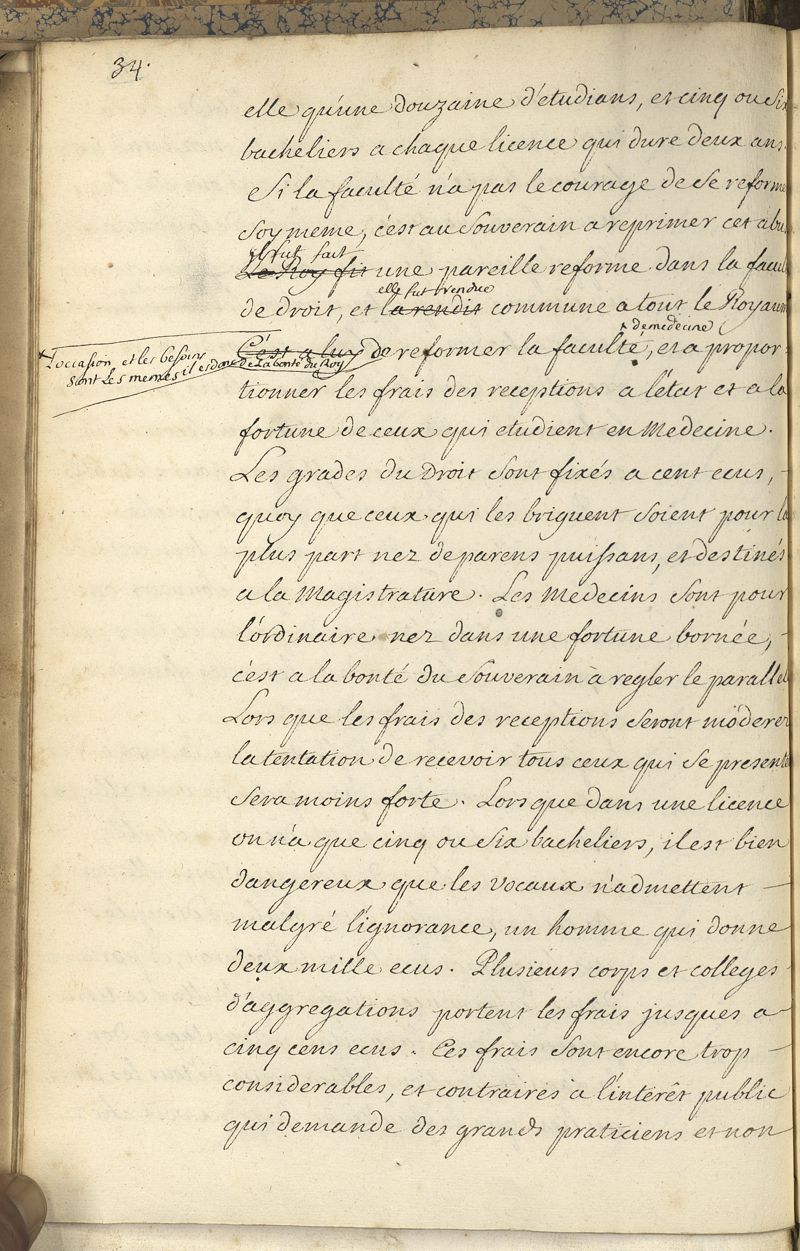 34.
elle qu'une douzaine d'etudians, et cinq ou six
bacheliers a chaque licence qui dure deux ans.
Si la faculté n'a pas le courage de se reforme
soy meme, c'est au souverain a reprimer cet abu
il fut fait
Le Roy fit une pareille reforme dans la facul
elle fut rendue
de droit, et la rendit commune a tout le Royaum
de medecine
l'occasion et les besoins
sont les memes il est donc de la bonté du Roy
C'est a luy de reformer la faculté, et a propor-
tionner les frais des receptions a l'état et a la
fortune de ceux qui etudient en Medecine.
Les grades du Droit sont fixés a cent ecus,
quoy que ceux qui les briguent soient pour la
plus part nez de parens puissans, et destinés
a la Magistrature. Les Medecins sont pour
l'ordinaire nez dans une fortune bornée,
c'est a la bonté du souverain à regler le parallel
Lors que les frais des receptions seront móderez
la tentation de recevoir tous ceux qui se presente
sera moins forte. Lors que dans une licence
on n'a que cinq ou six bacheliers, il est bien
dangereux que les vocaux n'admettent
malgré l'ignorance, un homme qui donne
deux mille ecus. Plusieurs corps et colleges
d'aggregations portent les frais jusques a
cinq cens ecus. Ces frais sont encore trop
considerables, et contraires a l'interêt public
qui demande des grands praticiens et non